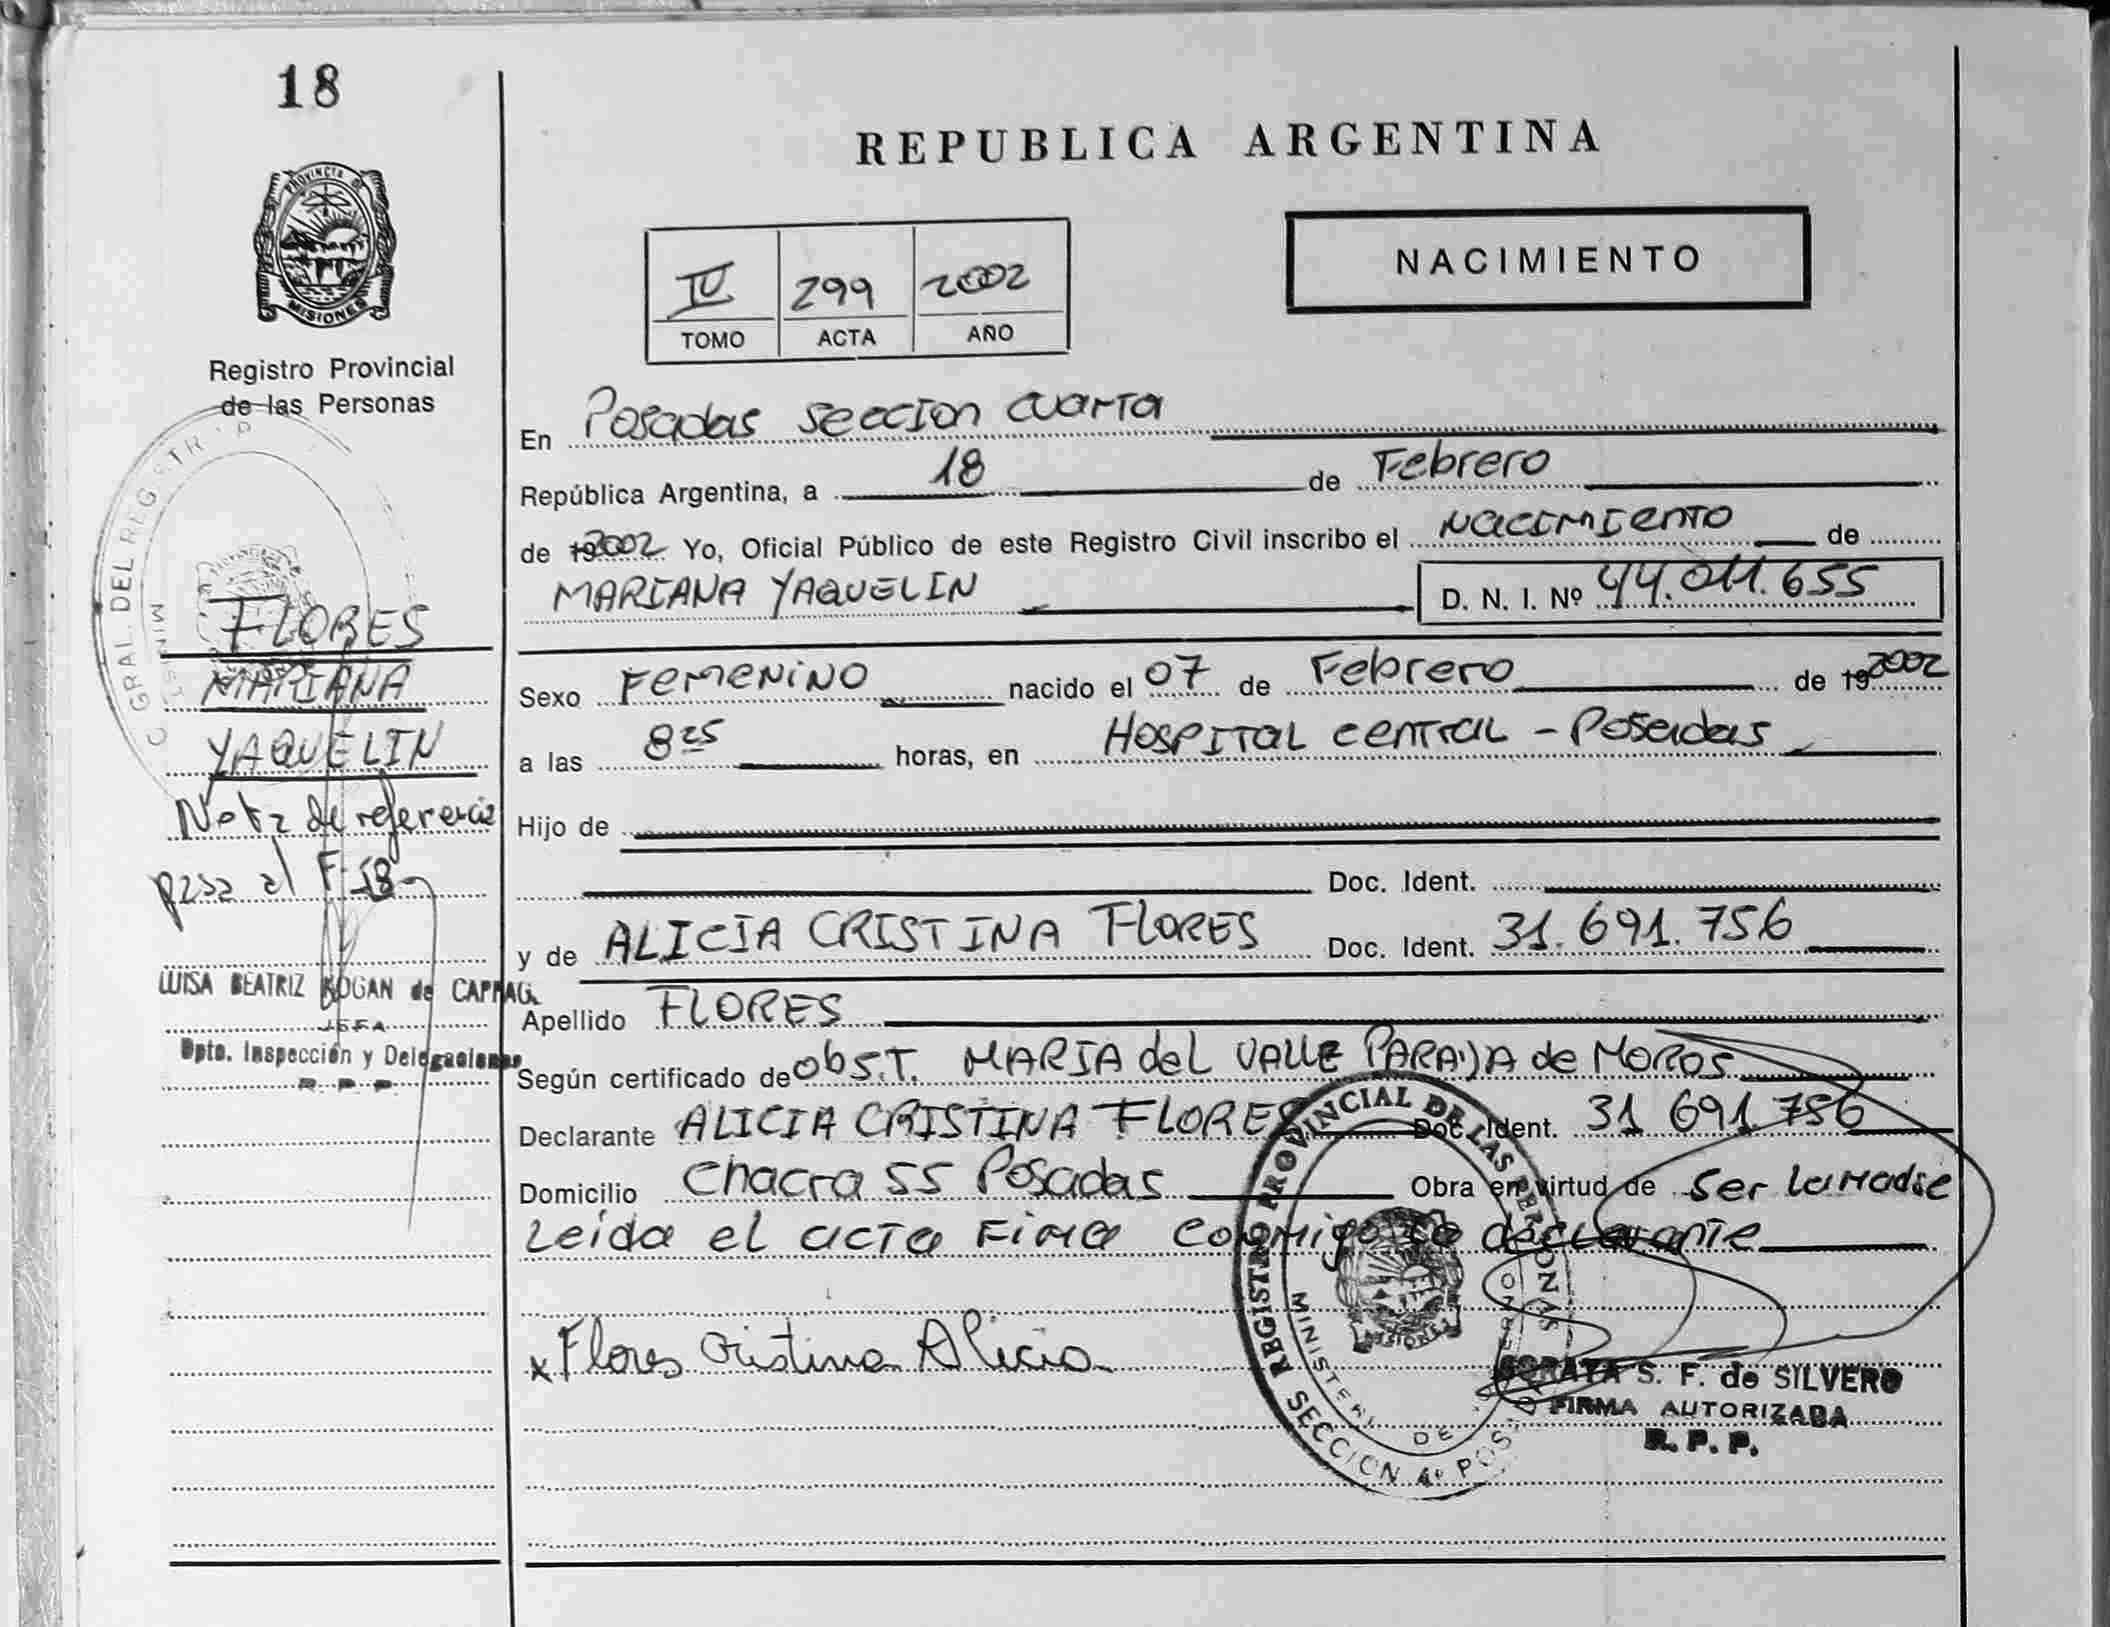 18
PROVINCIA DE
MISIONES
Registro Provincial
de las Personas
FLORES
MARIANA
YAQUELIN
Nota de referencia
pasa al F 18
LUISA BEATRIZ KOGAN de
JEFA
Dpto. Inspección y Delegaciones
R. P. P.
REPUBLICA ARGENTINA
NACIMIENTO
IV 299 2002
TOMO ACTA AÑO
En Posadas seccion cuarta
República Argentina, a 18 de Febrero
de 19 2002 Yo, Oficial Público de este Registro Civil inscribo el Nacimiento de
MARIANA YAQUELIN D. N. I. Nº 44.011.655
Sexo Femenino nacido el 07 de Febrero de 19 2002
a las 8 25 horas, en Hospital central - Posadas
Hijo de
Doc. Ident.
y de ALICIA CRISTINA FLORES Doc. Ident. 31.691.756
Apellido FLORES
Según certificado de obst. MARIA del VALLE de MOROS
Declarante ALICIA CRISTINA FLORES Doc. Ident. 31 691.756
Domicilio chacra 55 Posadas Obra en virtud de ser la madre
Leida el acta Firma conmigo la declarante
x Flores Cristina Alicia
REGISTRO PROVINCIAL DE LAS PERSONAS
SECCION 4º POS
S. F. de SILVERO
FIRMA AUTORIZADA
R. P. P.